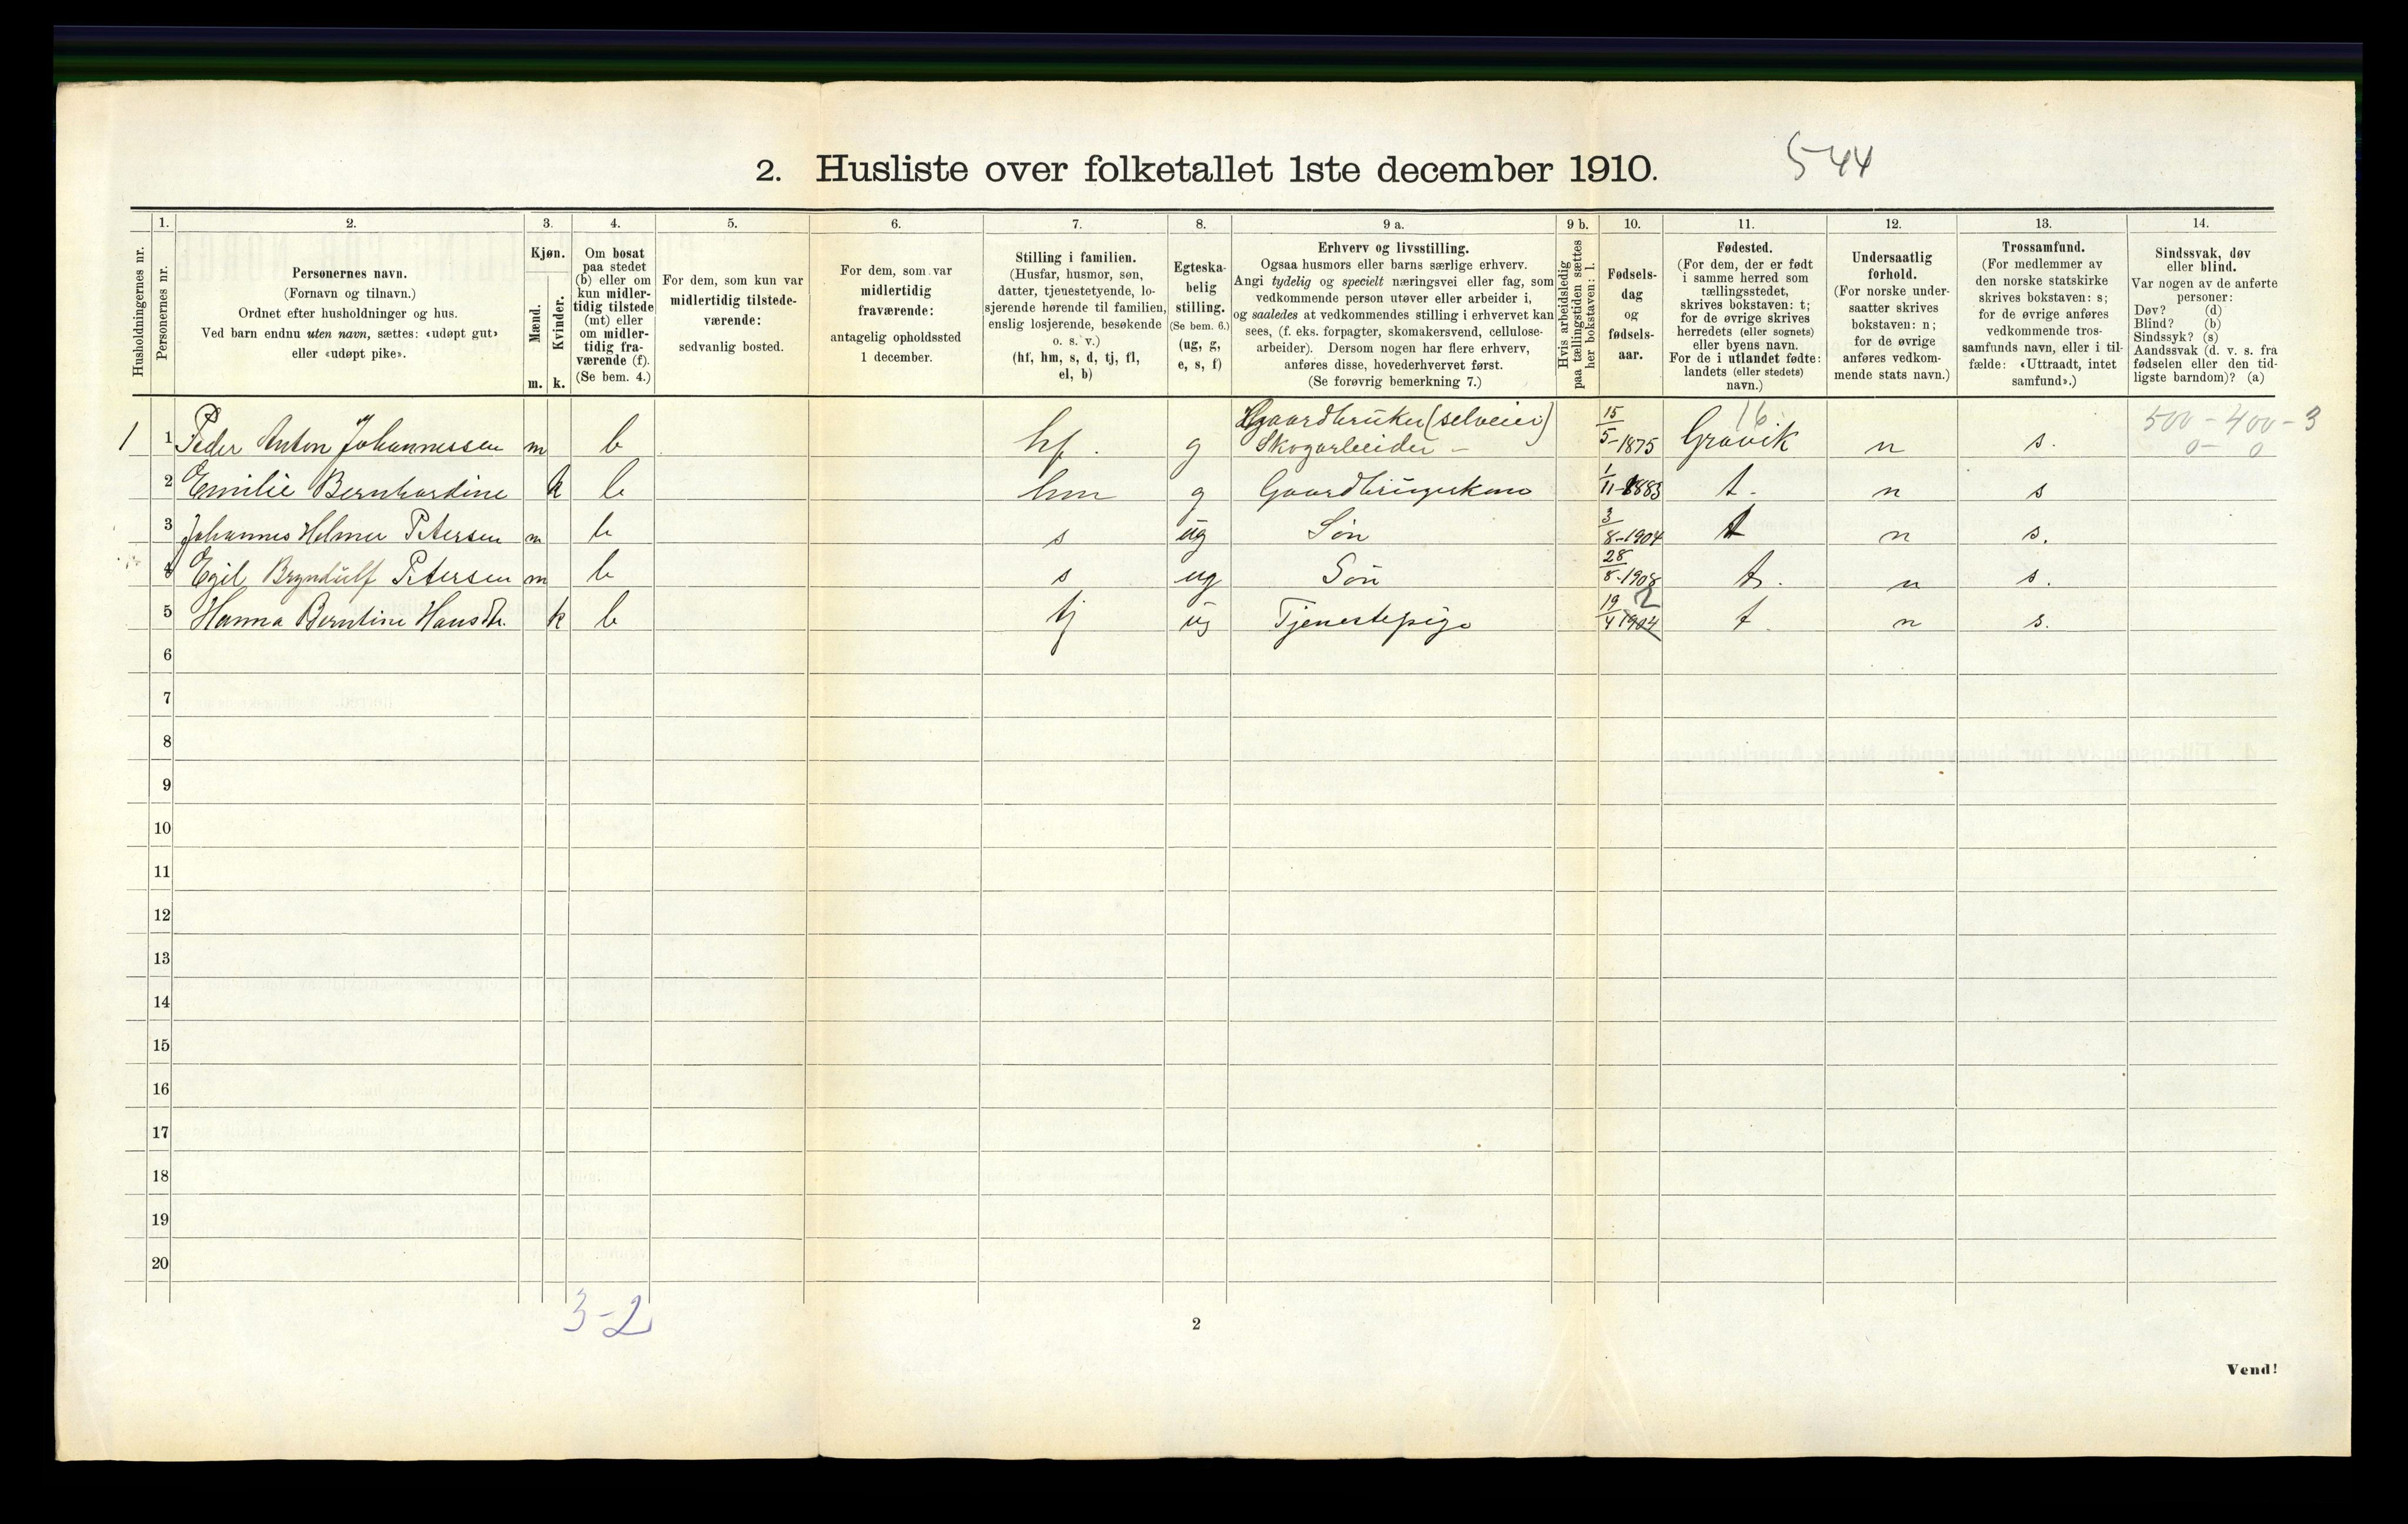 2. Husliste over folketallet 1ste december 1910.
544
Husholdningernes nr.
1.
Personernes nr.
2.
Personernes navn.
(Fornavn og tilnavn.)
Ordnet efter husholdninger og hus.
Ved barn endnu uten navn, sættes: «udøpt gut»
eller «udøpt pike».
3.
Kjøn.
Mænd.
Kvinder.
m. k.
4.
Om bosat
paa stedet
(b) eller om
kun midler-
tidig tilstede
(mt) eller
om midler-
tidig fra-
værende (f).
(Se bem. 4.)
5.
For dem, som kun var
midlertidig tilstede-
værende:
sedvanlig bosted.
6.
For dem, som var
midlertidig
fraværende:
antagelig opholdssted
1 december.
7.
Stilling i familien.
(Husfar, husmor, søn,
datter, tjenestetyende, lo-
sjerende hørende til familien,
enslig losjerende, besøkende
o. s. v.)
(hf, hm, s, d, tj, fl,
el, b)
8.
Egteska-
belig
stilling.
(Se bem. 6.)
(ug, g,
e, s, f)
9 a.
Erhverv og livsstilling.
Ogsaa husmors eller barns særlige erhverv.
Angi tydelig og specielt næringsvei eller fag, som
vedkommende person utøver eller arbeider i,
og saaledes at vedkommendes stilling i erhvervet kan
sees, (f. eks. forpagter, skomakersvend, cellulose-
arbeider). Dersom nogen har flere erhverv,
anføres disse, hovederhvervet først.
(Se forøvrig bemerkning 7.)
9 b.
Hvis arbeidsledig
paa tællingstiden sættes
her bokstaven: l.
10.
Fødsels-
dag
og
fødsels-
aar.
11.
Fødested.
(For dem, der er født
i samme herred som
tællingsstedet,
skrives bokstaven: t;
for de øvrige skrives
herredets (eller sognets)
eller byens navn.
For de i utlandet fødte:
landets (eller stedets)
navn.)
12.
Undersaatlig
forhold.
(For norske under-
saatter skrives
bokstaven: n;
for de øvrige
anføres vedkom-
mende stats navn.)
13.
Trossamfund.
(For medlemmer av
den norske statskirke
skrives bokstaven: s;
for de øvrige anføres
vedkommende tros-
samfunds navn, eller i til-
fælde: «Uttraadt, intet
samfund».)
14.
Sindssvak, døv
eller blind.
Var nogen av de anførte
personer:
Døv? (d)
Blind? (b)
Sindssyk? (s)
Aandssvak (d. v. s. fra
fødselen eller den tid-
ligste barndom)? (a)
1 1 Peder Anton Johannessen m b hf. g Gaardbruker (selveier) Skogarbeider - 15/5-1875 16 Gravik n s. 500-400-3
0- 0
2 Emilie Bernhardine k b hm g Gaardbrugerkone 1/11-1883 t. n s
3 Johannes Helmer Petersen m b s ug Søn 3/8-1904 t n s.
4 Egil Bryndulf Petersen m b s ug Søn 28/8-1908 t. n s.
5 Hanna Berntine Hansdtr. k b tj ug Tjenestepige 19/4 1904 2 t. n s.
6
7
8
9
10
11
12
13
14
15
16
17
18
19
20
3-2
2
Vend!